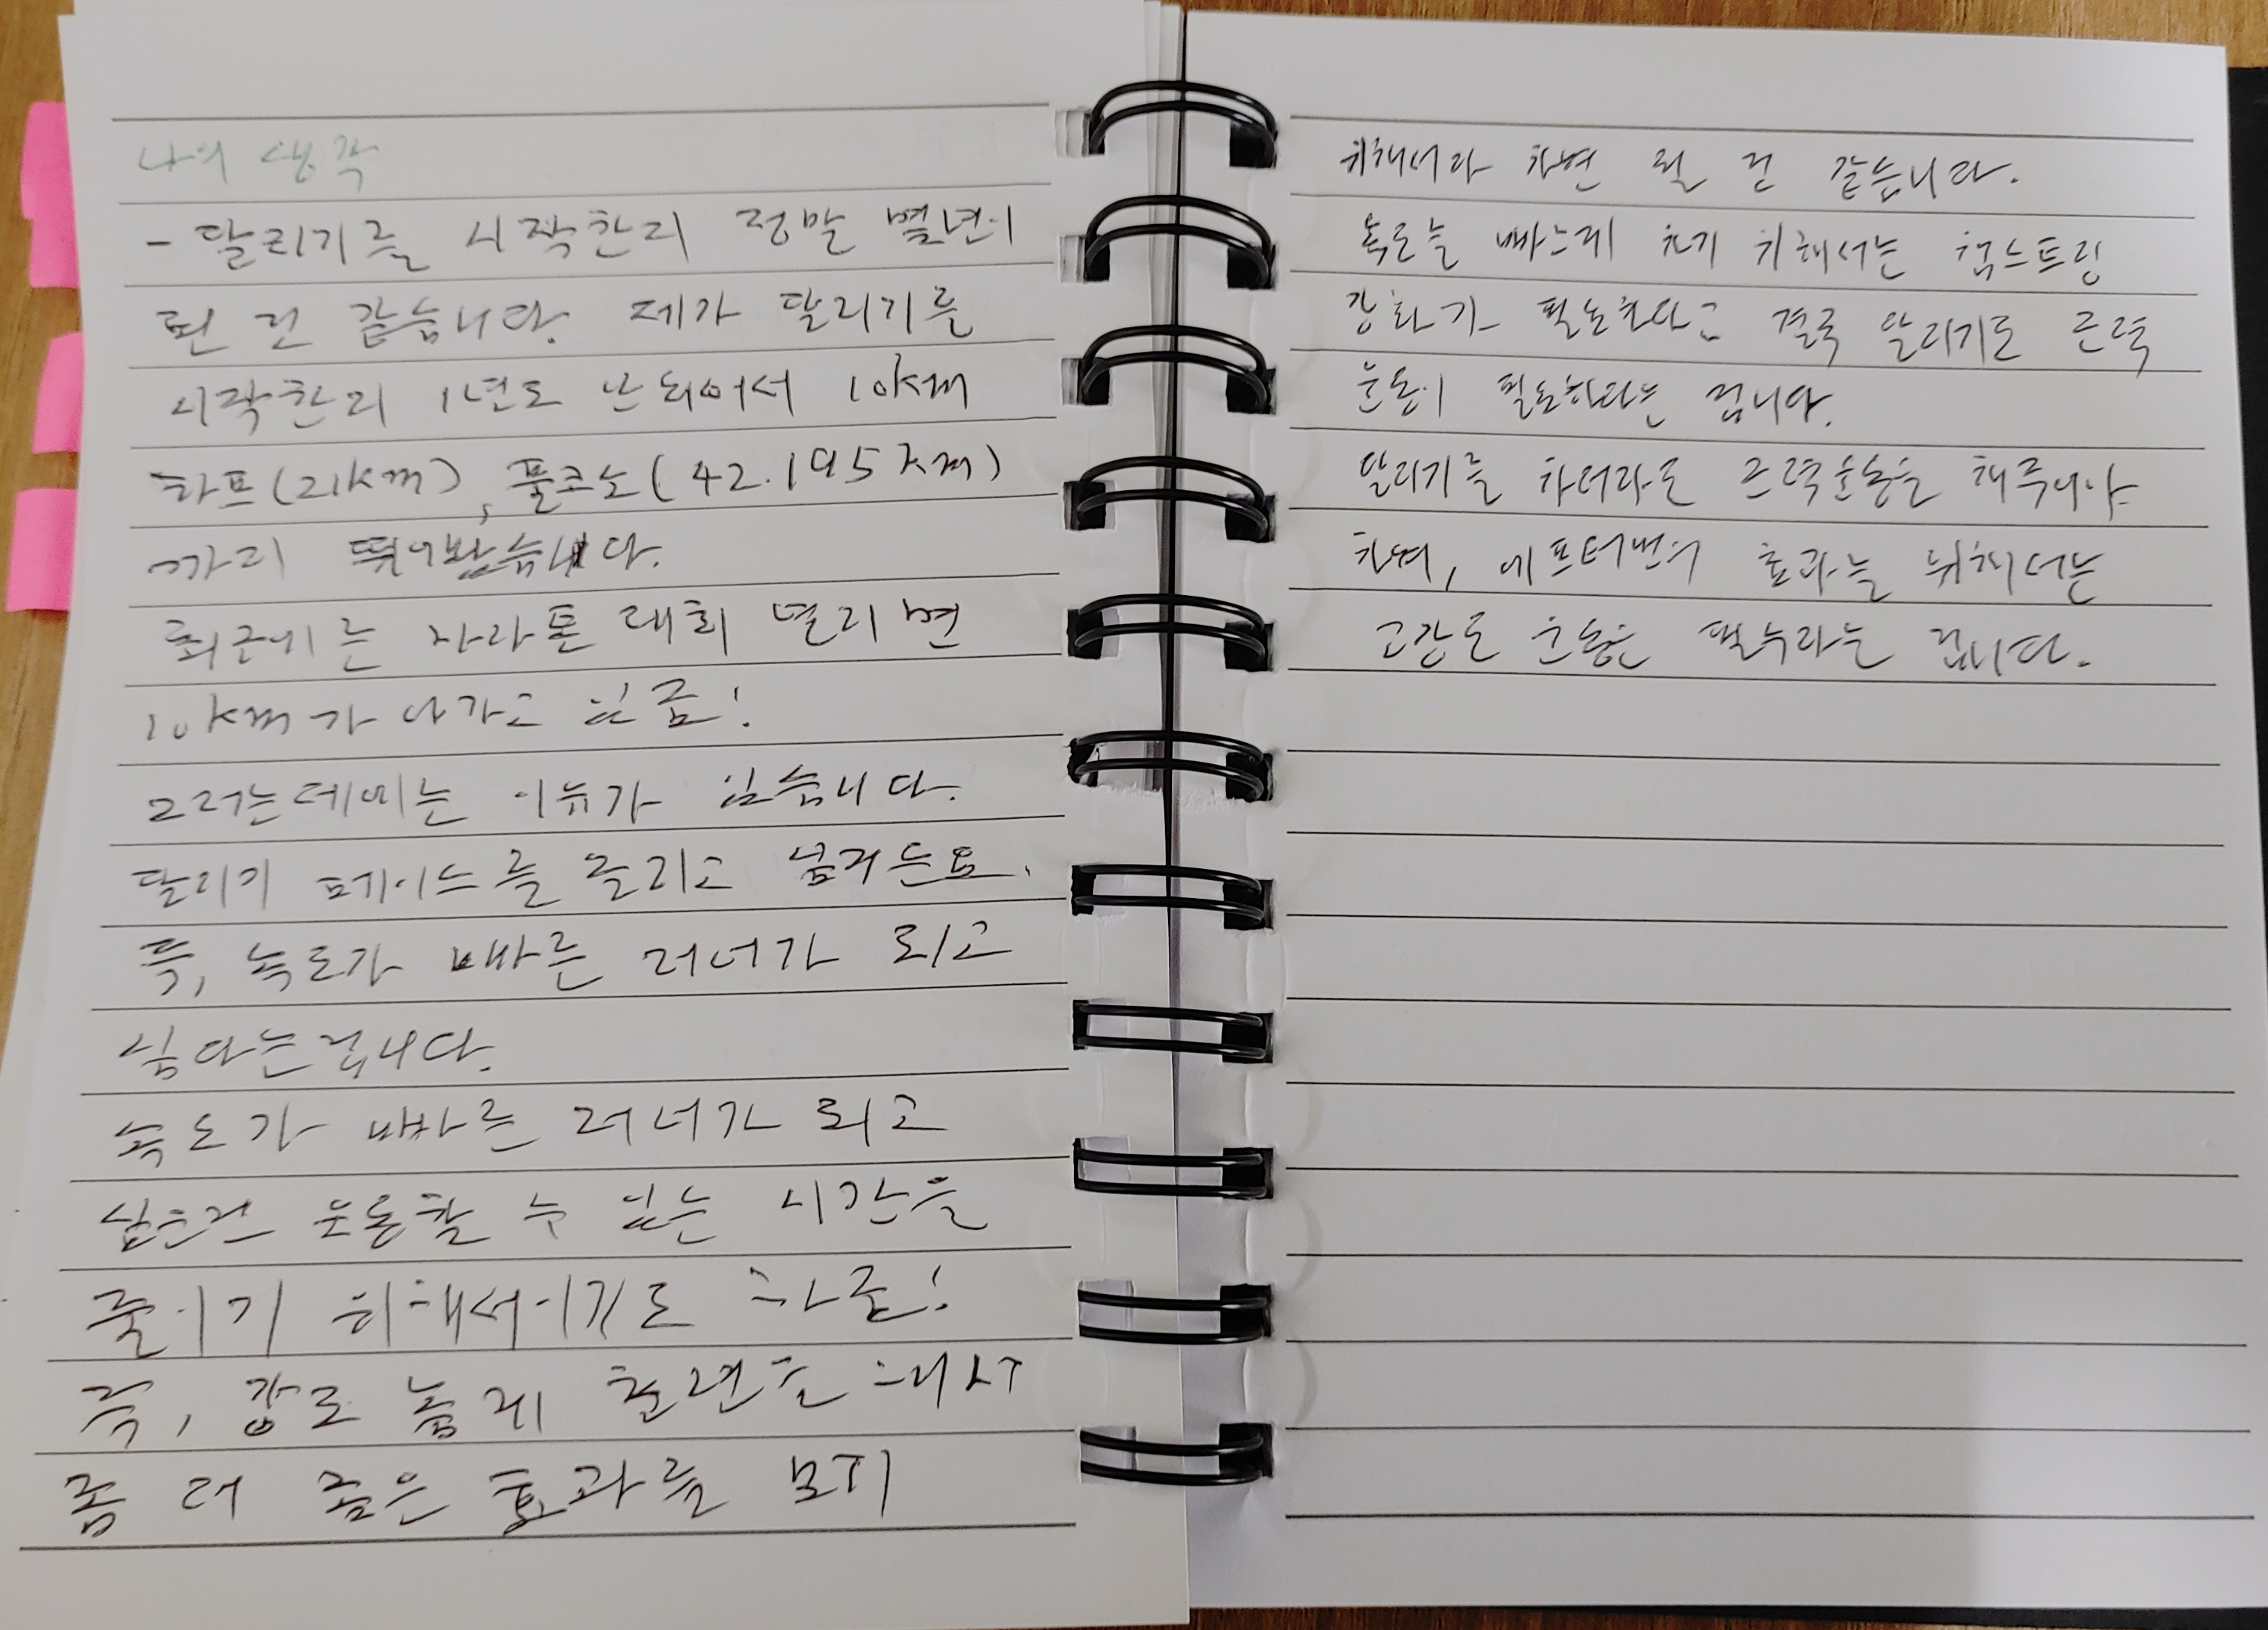 나의 생각
- 달리기를 시작한지 정말 몇년이
된 것 같습니다. 제가 달리기를
시작한지 1년도 안되어서 10km
하프(21km), 풀코스(42.195km)
까지 뛰어봤습니다.
최근에는 마라톤 대회 열리면
10km가 나가고 있죠!
그러는데에는 이유가 있습니다.
달리기 페이스를 올리고 싶거든요.
즉, 속도가 빠른 러너가 되고
싶다는겁니다.
속도가 빠른 러너가 되고
싶은건 운동할 수 있는 시간을
줄이기 위해서이기도 하죠!
즉, 강도 높게 훈련을 해서
좀 더 좋은 효과를 보기
위해서라 하면 될 것 같습니다.
속도를 빠르게 하기 위해서는 햄스트링
강화가 필요하다고 결국 달리기도 근력
운동이 필요하다는 겁니다.
달리기를 하더라도 근력운동을 해주어야
하며, 에프터번의 효과를 위해서는
고강도 운동은 필수라는 겁니다.